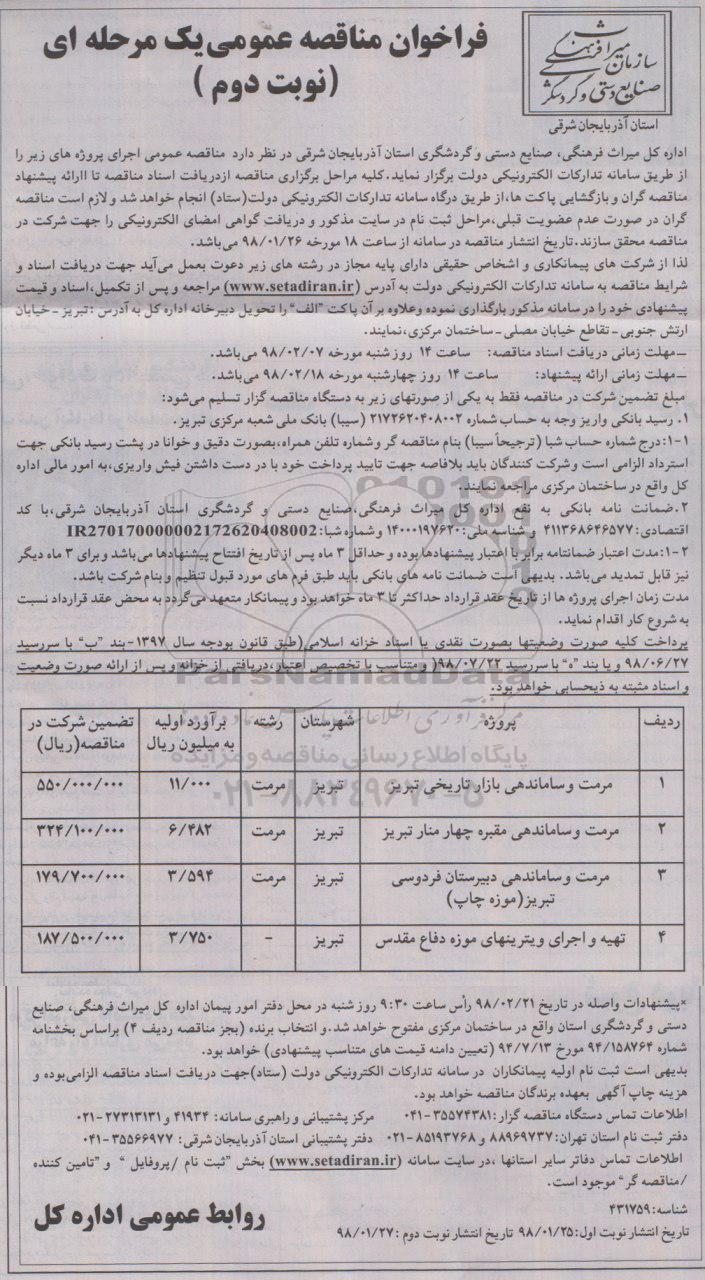 سازمان میراث فرهنگی
صنایع دستی و گردشگری
استان آذربایجان شرقی
فراخوان مناقصه عمومی یک مرحله ای
(نوبت دوم )
اداره کل میراث فرهنگی، صنایع دستی و گردشگری استان آذربایجان شرقی در نظر دارد مناقصه عمومی اجرای پروژه های زیر را
از طریق سامانه تدارکات الکترونیکی دولت برگزار نماید.کلیه مراحل برگزاری مناقصه ازدریافت اسناد مناقصه تا اارائه پیشنهاد
مناقصه گران و بازگشایی پاکت ها،از طریق درگاه سامانه تدارکات الکترونیکی دولت(ستاد) انجام خواهد شد و لازم است مناقصه
گران در صورت عدم عضویت قبلی،مراحل ثبت نام در سایت مذکور و دریافت گواهی امضای الکترونیکی را جهت شرکت در
مناقصه محقق سازند.تاریخ انتشار مناقصه در سامانه از ساعت ۱۸ مورخه ۹۸/۰۱/۲۶ می باشد.
لذا از شرکت های پیمانکاری و اشخاص حقیقی دارای پایه مجاز در رشته های زیر دعوت بعمل می آید جهت دریافت اسناد و
شرایط مناقصه به سامانه تدارکات الکترونیکی دولت به آدرس (www.setadiran.ir) مراجعه و پس از تکمیل،اسناد و قیمت
پیشنهادی خود را در سامانه مذکور بارگذاری نموده وعلاوه بر آن پاکت "الف" را تحویل دبیرخانه اداره کل به آدرس :تبریز-خیابان
ارتش جنوبی- تقاطع خیابان مصلی-ساختمان مرکزی،نمایند.
-مهلت زمانی دریافت اسناد مناقصه: ساعت ۱۴ روز شنبه مورخه ۹۸/۰۲/۰۷ می باشد.
-مهلت زمانی ارائه پیشنهاد: ساعت ۱۴ روز چهارشنبه مورخه ۹۸/۰۲/۱۸ می باشد.
مبلغ تضمین شرکت در مناقصه فقط به یکی از صورتهای زیر به دستگاه مناقصه گزار تسلیم می شود:
۱. رسید بانکی واریز وجه به حساب شماره ۲۱۷۲۶۲۰۴۰۸۰۰۲ (سیبا) بانک ملی شعبه مرکزی تبریز.
۱-۱:درج شماره حساب شبا (ترجیحاً سیبا) بنام مناقصه گر و شماره تلفن همراه،بصورت دقیق و خوانا در پشت رسید بانکی جهت
استرداد الزامی است و شرکت کنندگان باید بلافاصه جهت تایید پرداخت خود با در دست داشتن فیش واریزی،به امور مالی اداره
کل واقع در ساختمان مرکزی مراجعه نمایند.
۲.ضمانت نامه بانکی به نفع اداره کل میراث فرهنگی،صنایع دستی و گردشگری استان آذربایجان شرقی،با کد
اقتصادی:۴۱۱۳۶۸۶۴۶۵۷۷ و شناسه ملی:۱۴۰۰۰۱۹۷۶۲۰ و شماره شبا:IR270170000002172620408002
۲-۱:مدت اعتبار ضمانتنامه برابر با اعتبار پیشنهادها بوده و حداقل ۳ ماه پس از تاریخ افتتاح پیشنهادها می باشد و برای ۳ ماه دیگر
نیز قابل تمدید می باشد. بدیهی است ضمانت نامه های بانکی باید طبق فرم های مورد قبول تنظیم و بنام شرکت باشد.
مدت زمان اجرای پروژه ها از تاریخ عقد قرارداد حداکثر تا ۳ ماه خواهد بود و پیمانکار متعهد می گردد به محض عقد قرارداد نسبت
به شروع کار اقدام نماید.
پرداخت کلیه صورت وضعیتها بصورت نقدی یا اسناد خزانه اسلامی(طبق قانون بودجه سال ۱۳۹۷-بند "ب" با سررسید
۹۸/۰۶/۲۷ و یا بند "ه" با سررسید ۹۸/۰۷/۲۲( و متناسب با تخصیص اعتبار،دریافتی از خزانه و پس از ارائه صورت وضعیت
و اسناد مثبته به ذیحسابی خواهد بود.
ردیف پروژه شهرستان رشته برآورد اولیه به میلیون ریال تضمین شرکت در مناقصه(ریال)
۱ مرمت و ساماندهی بازار تاریخی تبریز تبریز مرمت ۱۱/۰۰۰ ۵۵۰/۰۰۰/۰۰۰
۲ مرمت و ساماندهی مقبره چهار منار تبریز تبریز مرمت ۶/۴۸۲ ۳۲۴/۱۰۰/۰۰۰
۳ مرمت و ساماندهی دبیرستان فردوسی تبریز(موزه چاپ) تبریز مرمت ۳/۵۹۴ ۱۷۹/۷۰۰/۰۰۰
۴ تهیه و اجرای ویترینهای موزه دفاع مقدس تبریز - ۳/۷۵۰ ۱۸۷/۵۰۰/۰۰۰
ParsNamadData
پایگاه اطلاع رسانی مناقصه و مزایده
۰۲۱-۸۸۳۴۹۶۷۰-۵
*پیشنهادات واصله در تاریخ ۹۸/۰۲/۲۱ رأس ساعت ۹:۳۰ روز شنبه در محل دفتر امور پیمان اداره کل میراث فرهنگی، صنایع
دستی و گردشگری استان واقع در ساختمان مرکزی مفتوح خواهد شد.و انتخاب برنده (بجز مناقصه ردیف ۴) براساس بخشنامه
شماره ۹۴/۱۵۸۷۶۴ مورخ ۹۴/۷/۱۳ (تعیین دامنه قیمت های متناسب پیشنهادی) خواهد بود.
بدیهی است ثبت نام اولیه پیمانکاران در سامانه تدارکات الکترونیکی دولت (ستاد)جهت دریافت اسناد مناقصه الزامی بوده و
هزینه چاپ آگهی بعهده برندگان مناقصه خواهد بود.
اطلاعات تماس دستگاه مناقصه گزار:۳۵۵۷۴۳۸۱-۰۴۱ مرکز پشتیبانی و راهبری سامانه: ۴۱۹۳۴ و ۲۷۳۱۳۱۳۱-۰۲۱
دفتر ثبت نام استان تهران:۸۸۹۶۹۷۳۷ و ۸۵۱۹۳۷۶۸-۰۲۱ دفتر پشتیبانی استان آذربایجان شرقی: ۳۵۵۶۶۹۷۷-۰۴۱
اطلاعات تماس دفاتر سایر استانها ،در سایت سامانه (www.setadiran.ir) بخش "ثبت نام /پروفایل " و "تامین کننده
/مناقصه گر" موجود است.
شناسه:۴۳۱۷۵۹
تاریخ انتشار نوبت اول:۹۸/۰۱/۲۵ تاریخ انتشار نوبت دوم :۹۸/۰۱/۲۷
روابط عمومی اداره کل